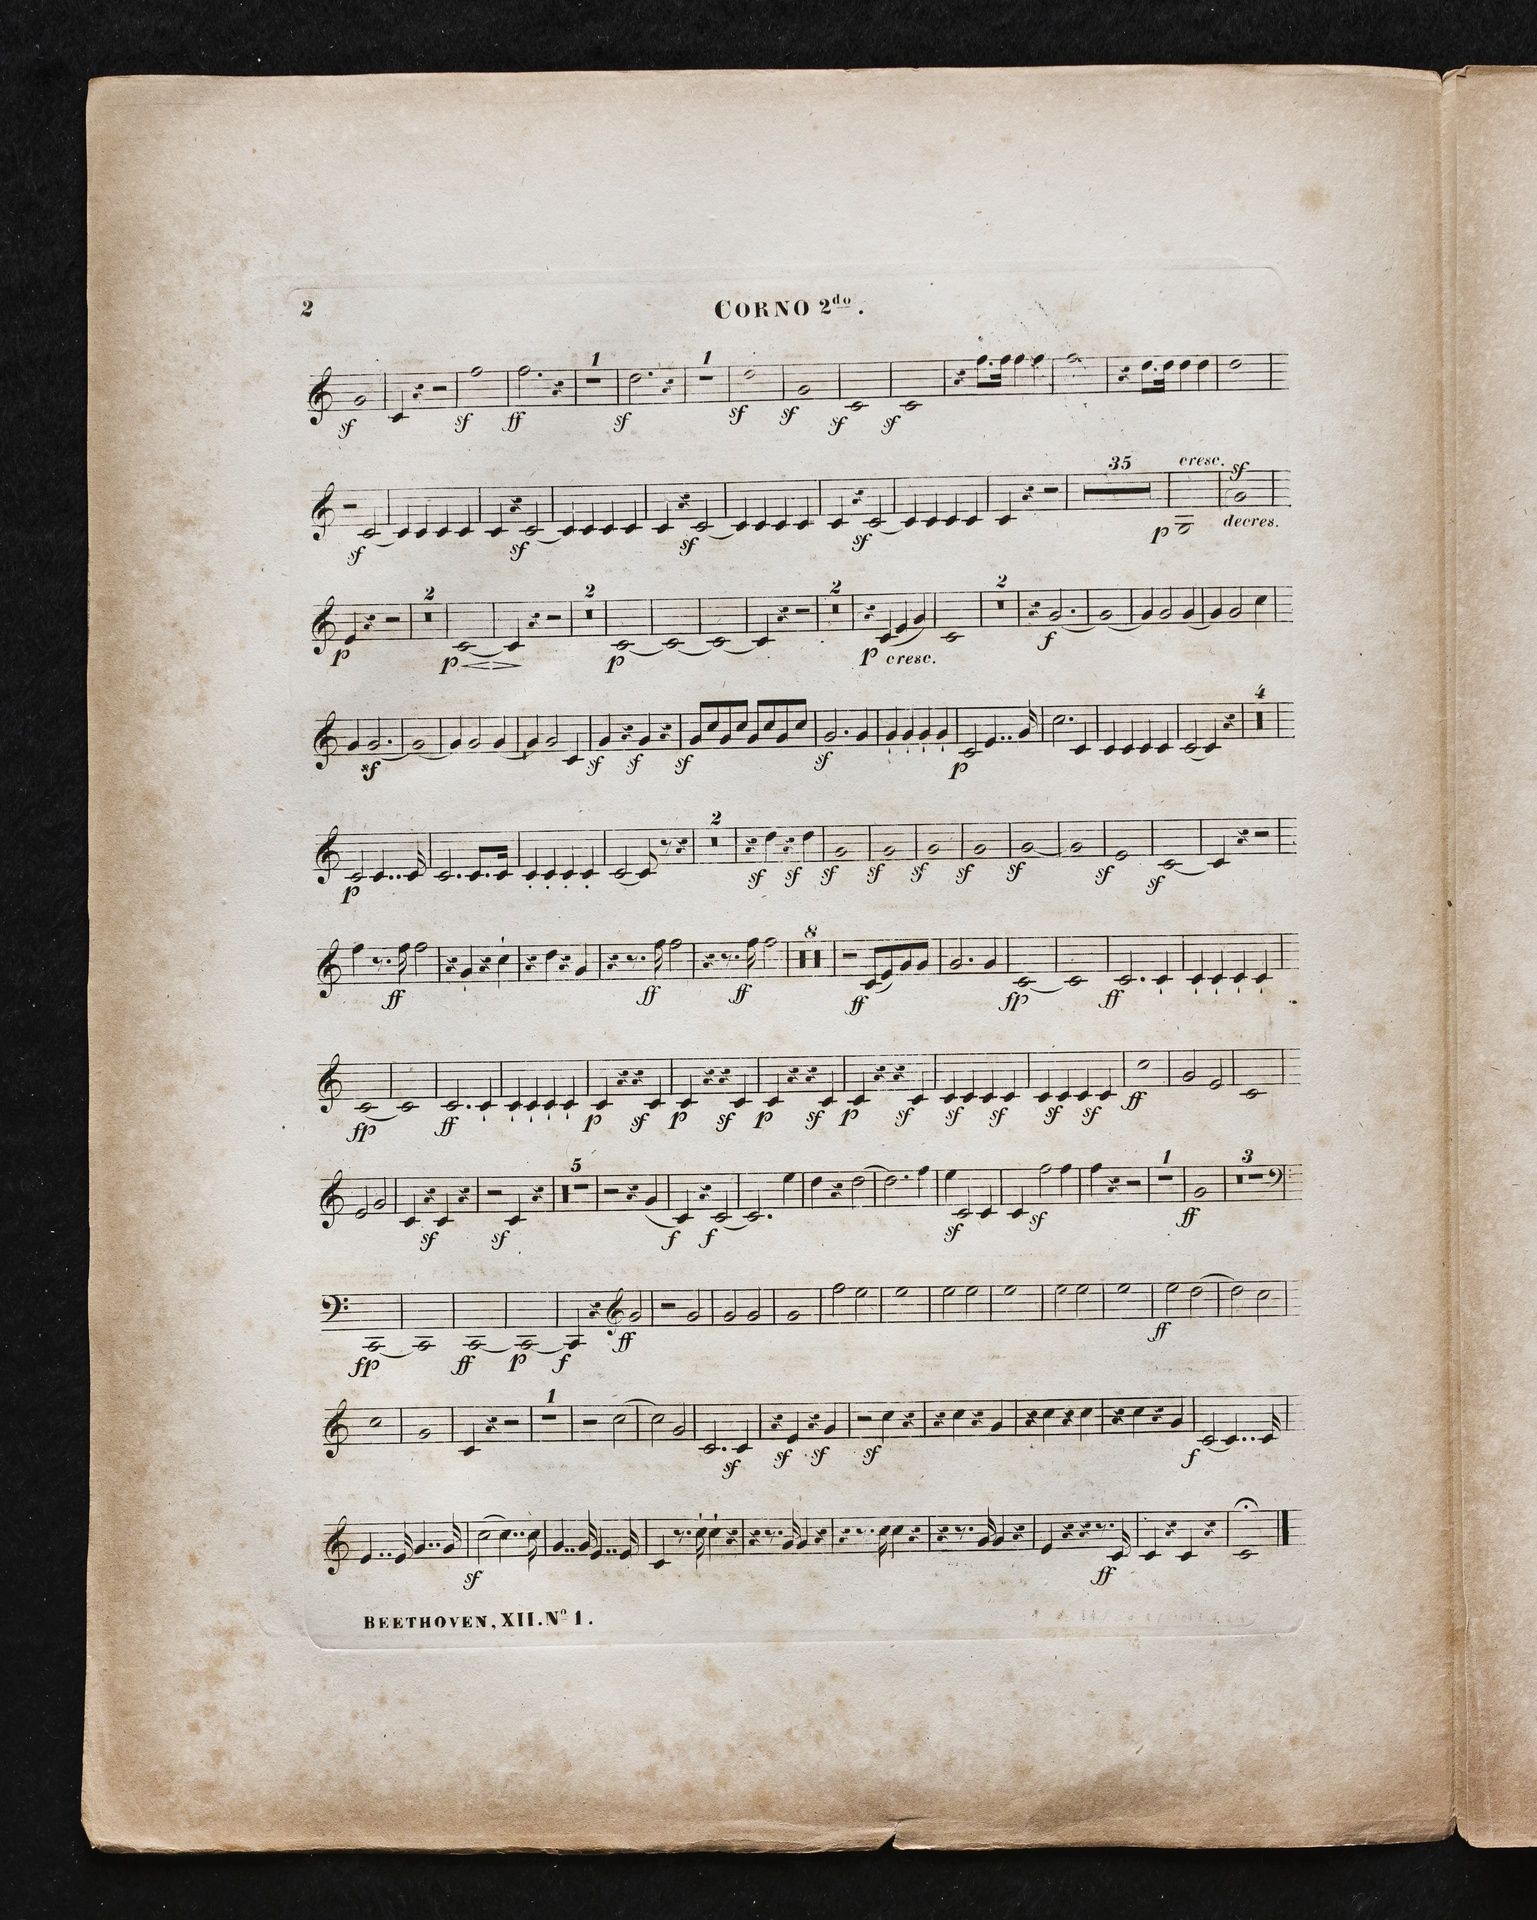 2
CORNO 2do.
1 1
sf sf ff sf sf sf sf sf
35 cresc. sf
sf sf sf sf p decres.
2 2 2 2
p p p p cresc. f
4
sf sf sf sf sf p
2
p sf sf sf sf sf sf sf sf sf
8
ff ff ff ff fp ff
fp ff p sf p sf p sf p sf sf sf sf sf ff
5 1 3
sf sf f f sf sf ff
fp ff p f ff ff
1
sf sf sf sf f
sf ff
BEETHOVEN, XII. No 1.